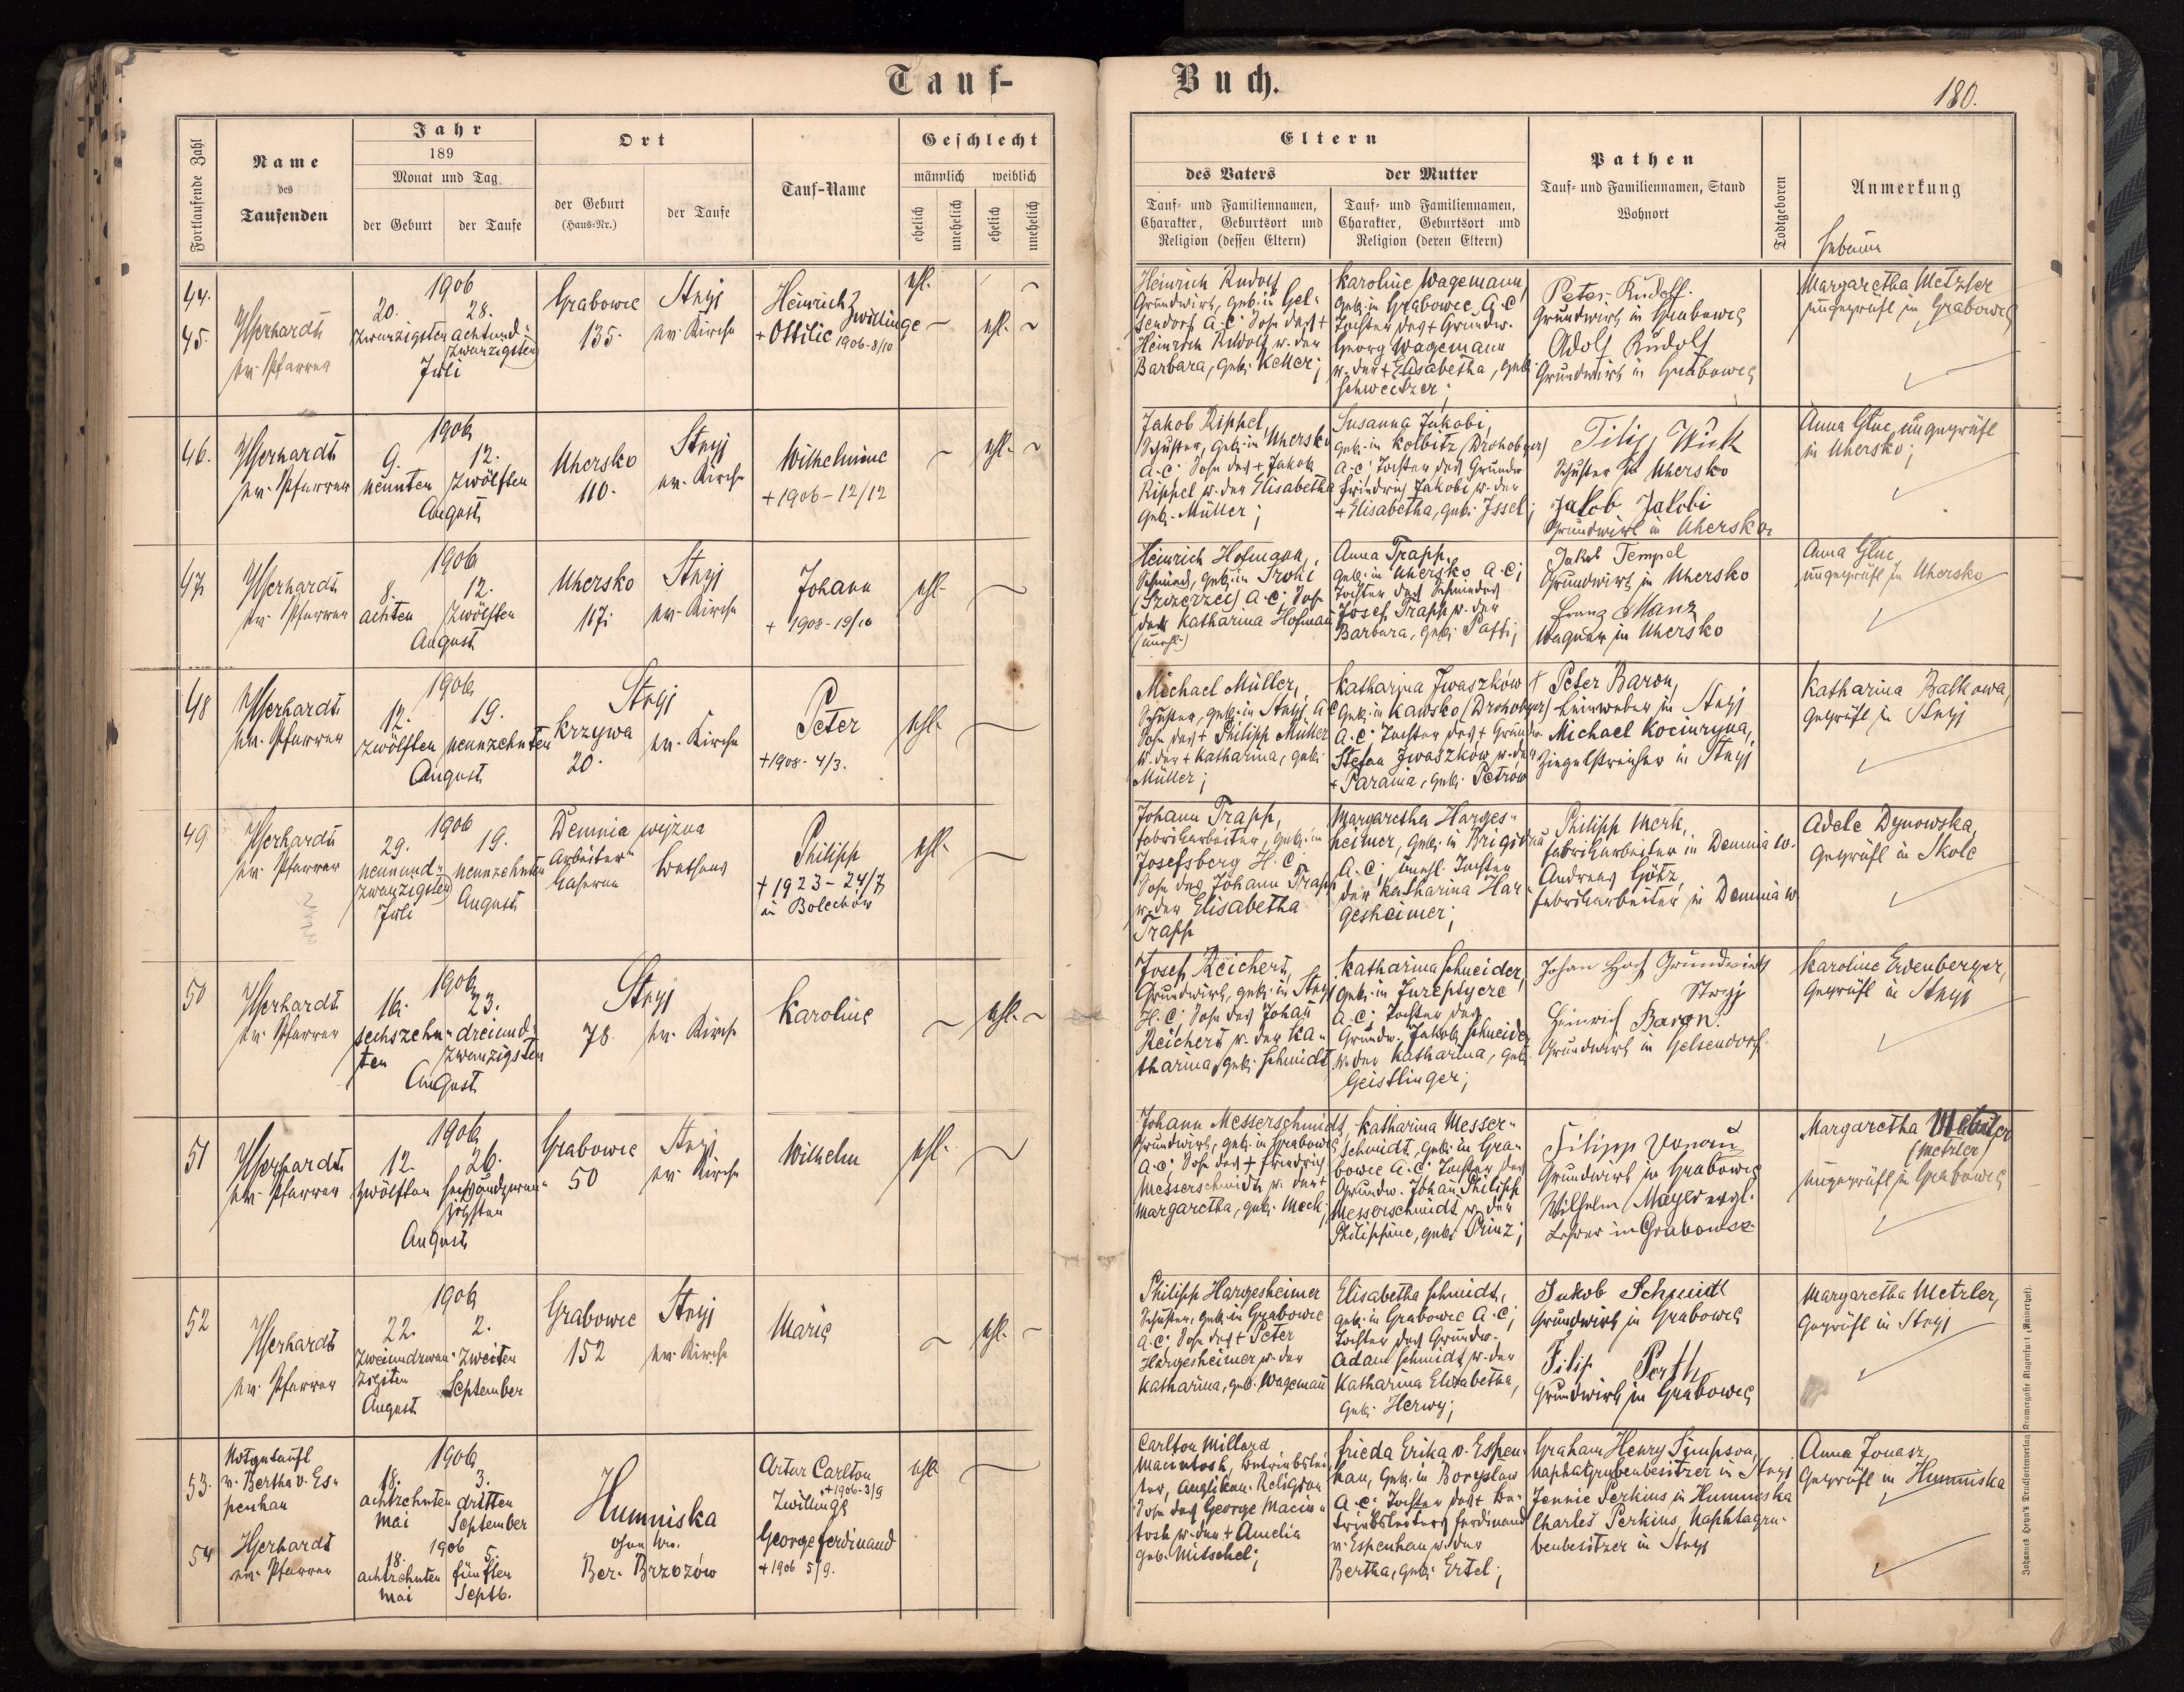 Tauf-
Buch.
180.
Fortlaufende Zahl
Name
des
Taufenden
Jahr
189
Monat und Tag
der Geburt
der Taufe
Ort
der Geburt
(Haus-Nr.)
der Taufe
Tauf-Name
Geschlecht
männlich
weiblich
ehelich
unehelich
ehelich
unehelich
Eltern
des Vaters
Tauf- und Familiennamen,
Charakter, Geburtsort und
Religion (dessen Eltern)
der Mutter
Tauf- und Familiennamen,
Charakter, Geburtsort und
Religion (deren Eltern)
Pathen
Tauf- und Familiennamen, Stand
Wohnort
Todtgeboren
Anmerkung
Hebamme
44.
45.
ev. Pfarrer
1906
20. 28.
zwanzigsten achtund-
zwanzigsten
Juli
Grabowic
135.
Stryj
ev. Kirche
Heinrich
Zwillinge
+ Ottilie 1906-8/10
ehl.
ehl.
Heinrich Rudolf
Grundwirt, geb. in Gel-
sendorf A.C. Sohn des +
Heinrich Rudolf u. der
Barbara, geb. Keller;
Karoline Wagemann,
geb. in Grabowic A.C
Tochter des + Grundw.
Georg Wagemann
u. der + Elisabetha, geb.
Schweitzer;
Peter Rudolf.
Grundwirt in Grabowic
Adolf Rudolf
Grundwirt in Grabowic
Margaretha Metzler
ungeprüft in Grabowic
46.
ev. Pfarrer
1906
9. 12.
neunten zwölften
August
Uhersko
110.
Stryj
ev. Kirche
Wilhelmine
+ 1906-12/12
ehl.
Jakob Rippel,
Schuster, geb. in Uhersko
A.C. Sohn des + Jakob
Rippel u. der Elisabetha
geb. Müller;
Susanna Jakobi,
geb. in Kolbitz (Drohobycz)
A.C. Tochter des Grundw
Friedrich Jakobi u. der
+ Elisabetha, geb. Issel;
Schuster in Uhersko
Jakob Jakobi
Grundwirt in Uhersko
Anna Gluc, ungeprüft
in Uhersko;
47
ev. Pfarrer
1906
8. 12.
achten zwölften
August
Uhersko
17.
Stryj
ev. Kirche
Johann
+ 1908-19/10
ehl.
Heinrich Hofmann,
Schmied, geb. in
(Szczerzec) A.C. Sohn
der Katharina Hofmann
(unehl.)
Anna Trapp,
geb. in Uhersko A.C;
Tochter des Schmiedes
Josef Trapp u. der
Barbara, geb.
Jakob Tempel
Grundwirt in Uhersko
Franz Manz
Wagner in Uhersko
Anna Gluc
ungeprüft in Uhersko
48
ev. Pfarrer
1906
12. 19.
zwölften neunzehnten
August
Stryj
krzywa
20.
ev. Kirche
Peter
+ 1908-4/3.
ehl.
Michael Müller,
Schuster, geb. in Stryj A.C
Sohn des + Philipp Müller
u. der + Katharina, geb.
Müller;
Katharina Iwaszków
geb. in Kawsko (Drohobycz)
A.C. Tochter des + Grundw
Stefan Iwaszków u. der
+ Parania, geb. Petrów
Peter Baron,
Leinweber in Stryj
Michael Kociuryna,
Ziegelstreicher in Stryj
Katharina Batkowa,
geprüft in Stryj
49
ev. Pfarrer
1906
29. 19.
neunund- neunzehnten
zwanzigsten
Juli August
Demnia wyżna
Arbeiter-
kaserne
Bethaus
Philipp
+ 1923-24/7
in Bolechów
ehl.
Johann Trapp,
Fabrikarbeiter, geb. in
Josefsberg H.C.
Sohn des Johann Trapp
u. der Elisabetha
Trapp
Margaretha Harges-
heimer, geb. in Brigidau
A.C; unehl. Tochter
der Katharina Har-
gesheimer;
Philipp Merk,
Fabrikarbeiter in Demnia w.
Andreas Götz,
Fabrikarbeiter in Demnia w
Adele Dynowska,
geprüft in Skole
50
ev. Pfarrer
1906
16. 23.
sechszehn- dreiund-
ten zwanzigsten
August
Stryj
78.
ev. Kirche
Karoline
ehl.
Josef Reichert,
Grundwirt, geb. in Stryj
H.C. Sohn des Johann
Reichert u. der Ka-
tharina, geb. Schmidt
Katharina Schneider,
geb. in
A.C; Tochter des
Grundw. Jakob Schneider
u. der Katharina, geb.
Geistlinger;
Johan Hoch Grundwirt
Stryj
Heinrich Baron.
Grundwirt in Gelsendorf
Karoline Erdenberger,
geprüft in Stryj
51
ev. Pfarrer
1906
12. 26.
zwölften sechsundzwan-
zigsten
August
Grabowic
50
Stryj
ev. Kirche
Wilhelm
ehl.
Johann Messerschmidt,
Grundwirt, geb. in Grabowic
A.C. Sohn des + Friedrich
Messerschmidt u. der +
Margaretha, geb. Meck;
Katharina Messer-
schmidt, geb. in Gra-
bowic A.C. Tochter des
Grundw. Johann Philipp
Messerschmidt u. der
Philippine, geb. Prinz;
Filipp Vonau
Grundwirt in Grabowic
Wilhelm Mayer evgl.
Lehrer in Grabowce
Margaretha
(Metzler)
ungeprüft in Grabowic
52
ev. Pfarrer
1906
22. 2.
zweiundzwan- zweiten
zigsten September
August
Grabowic
152
Stryj
ev. Kirche
Marie
ehl.
Philipp Hargesheimer
Schuster, geb. in Grabowic
A.C. Sohn des + Peter
Hargesheimer u. der
Katharina, geb. Wagemann
Elisabetha Schmidt,
geb. in Grabowic A.C;
Tochter des Grundw.
Adam Schmidt u. der
Katharina Elisabetha,
geb. Herwy;
Jakob Schmidt
Grundwirt in Grabowic
Filip Perth
Grundwirt in Grabowic
Margaretha Metzler,
geprüft in Stryj
53.
54
Notgetauft
v. Bertha v. Es-
penhan
ev. Pfarrer
1906
18. 3.
achtzehnten dritten
Mai September
1906
18. 5.
achtzehnten fünften
Mai Septb.
Humniska
ohne Nro.
Bez. Brzozów
Artur Carlton
+ 1906-3/9
Zwillinge
George Ferdinand
+ 1906 5/9.
ehl.
Carlton Millard
Macintosh, Betriebslei-
ter, Anglikan. Religion
Sohn des George Macin-
tosh u. der + Amelia
geb. Mitschel;
Frieda Erika v. Espen-
han, geb. in Boryslaw
A.C. Tochter des + Be-
triebsleiters Ferdinand
v. Espenhan u. der
Bertha, geb. Ertel;
Graham Henry Simpson,
Naphtagrubenbesitzer in Stryj
Jennie Perkins in Humniska
Charles Perkins, Naphtagru-
benbesitzer in Stryj
Anna Jonasz,
geprüft in Humniska
Johannes Heyn's Druckortenverlag Kramergasse Klagenfurt (Kaiserhof).